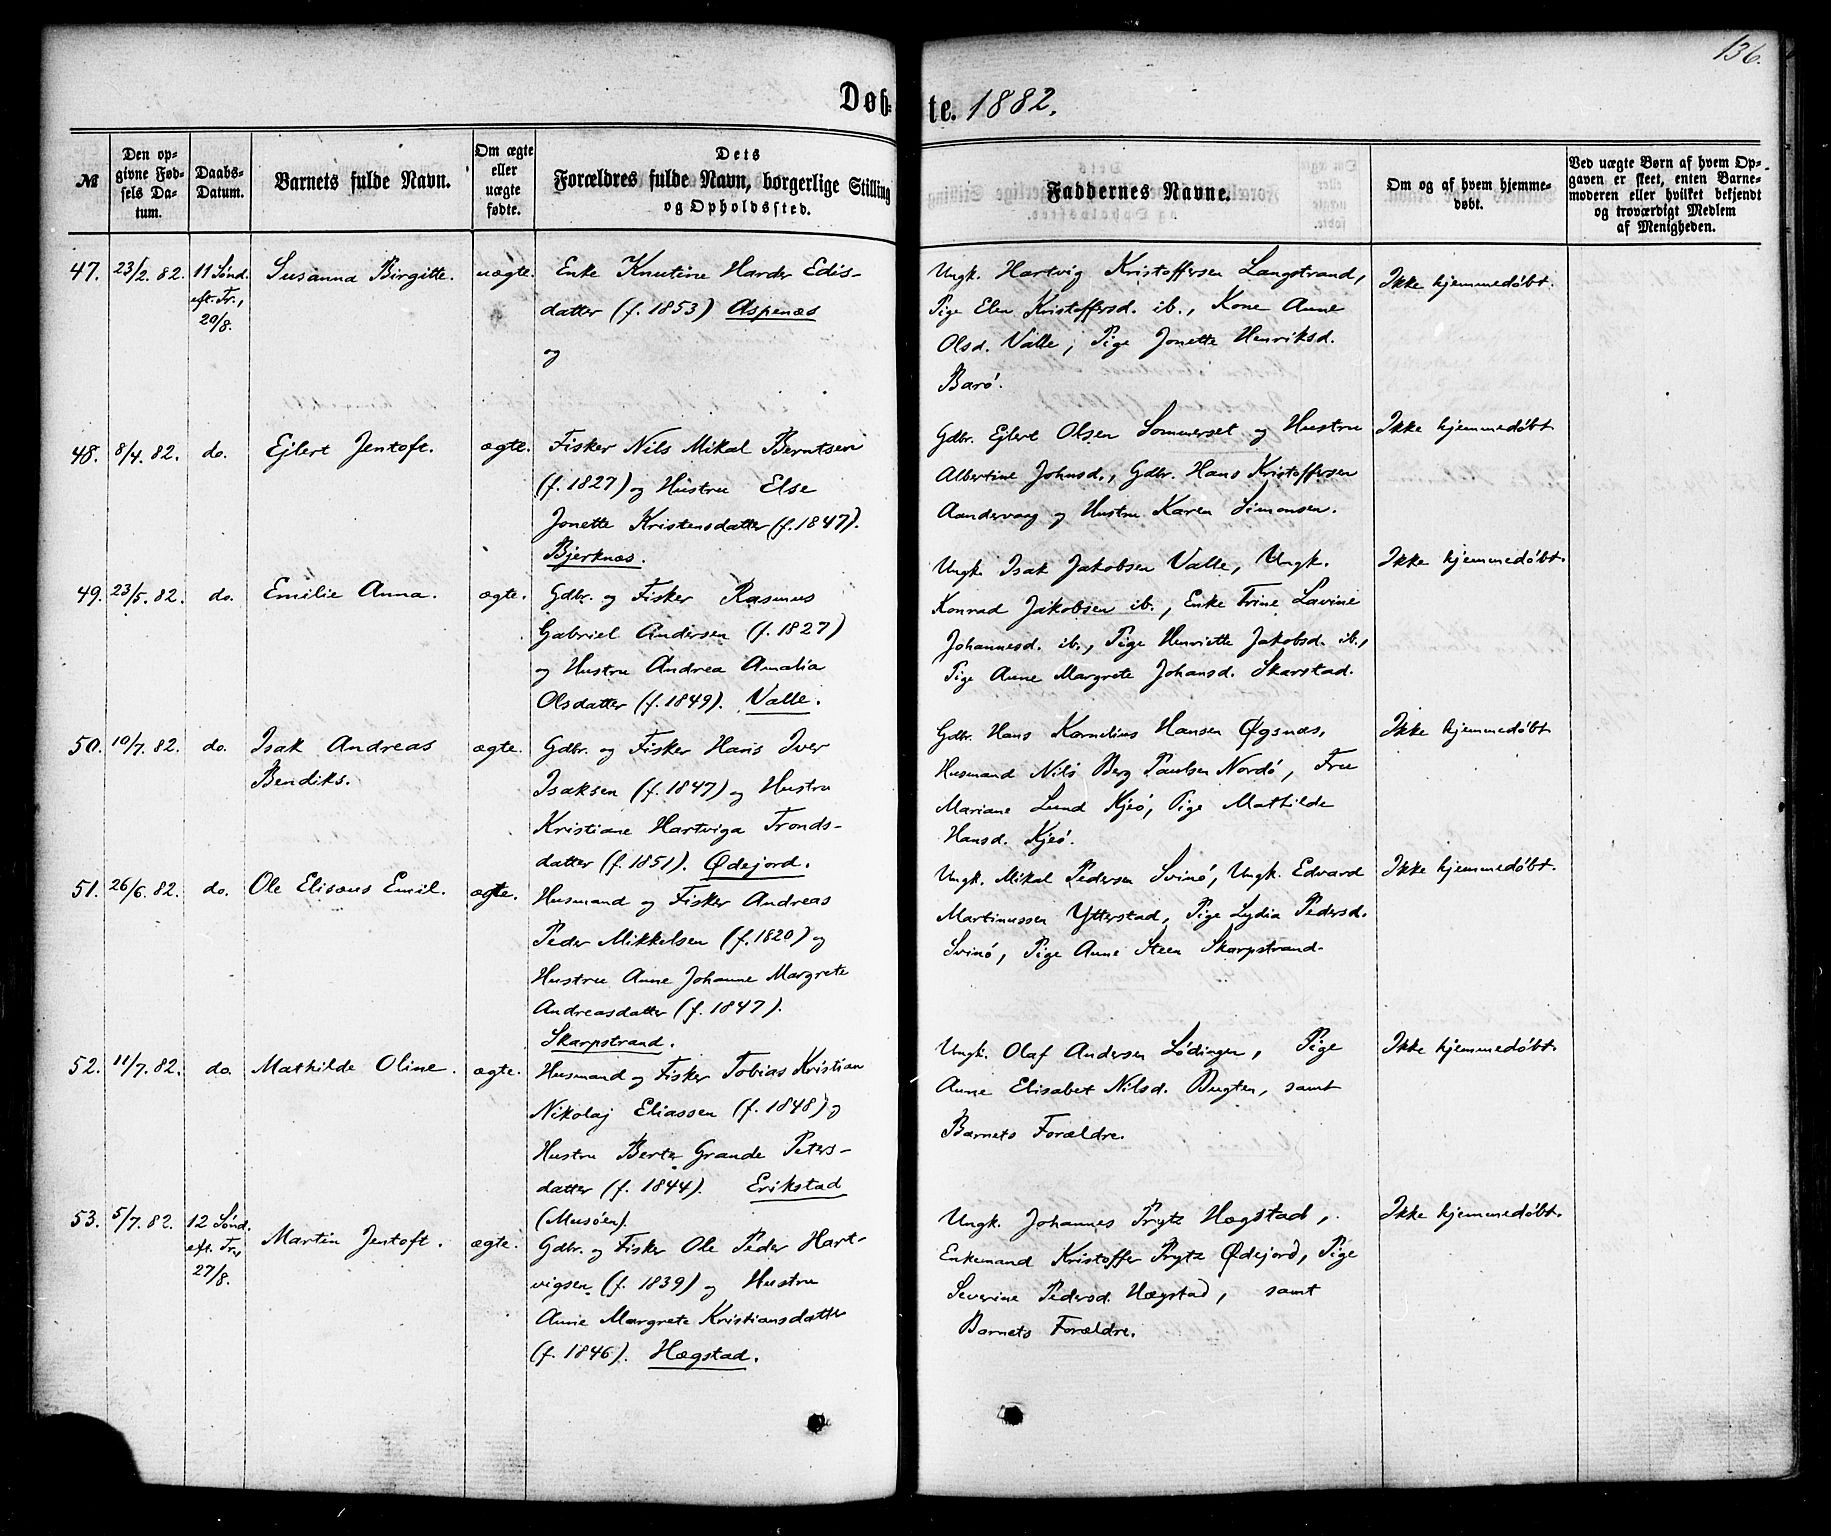 136.
Døb-
te. 1882.
№
Den op-
givne Fød-
sels Da-
tum.
Daabs-
Datum.
Barnets fulde Navn.
Om ægte
eller
uægte
fødte.
Dets
Forældres fulde Navn, borgerlige Stilling
og Opholdssted.
Faddernes Navne.
Om og af hvem hjemme-
døbt.
Ved uægte Børn af hvem Op-
gaven er skeet, enten Barne-
moderen eller hvilket bekjendt
og troværdigt Medlem
af Menigheden.
47. 23/2. 82. 11 Sønd.
eft. Tr.,
20/8.
Susanna Birgitte. uægte.
Enke Knutine Harder Edis-
datter (f. 1853) Aspenæs
og
Ungk. Hartvig Kristoffersen Langstrand,
Pige Elen Kristoffersd. ib., Kone Anne
Olsd. Valle, Pige Jonette Henriksd.
Barø.
Ikke hjemmedøbt.
48. 8/4. 82. do. Ejlert Jentoft. ægte.
Fisker Nils Mikal Berntsen
(f. 1827) og Hustru Else
Jonette Kristensdatter (f. 1847).
Bjerknæs.
Gdbr. Ejlert Olsen Sommerset og Hustru
Albertine Johnsd., Gdbr. Hans Kristoffersen
Aandervaag og Hustru Karen Simonsen.
Ikke hjemmedøbt
49. 23/5. 82. do. Emilie Anna. ægte.
Gdbr. og Fisker Rasmus
Gabriel Andersen (f. 1827)
og Hustru Andrea Amalia
Olsdatter (f. 1849). Valle.
Ungk. Isak Jakobsen Valle, Ungk.
Konrad Jakobsen ib., Enke Trine Lavine
Johannesd. ib., Pige Henriette Jakobsd. ib.,
Pige Anne Margrete Johansd. Skarstad.
Ikke hjemmedøbt.
50. 10/7. 82. do. Isak Andreas
Bendiks.
ægte.
Gdbr. og Fisker Hans Iver
Isaksen (f. 1847) og Hustru
Kristiane Hartviga Tronds-
datter (f. 1851). Ødejord.
Gdbr. Hans Kornelius Hansen Øgsnæs,
Husmand Nils Berg Paulsen Nordø, Fru
Mariane Lund Kjeø, Pige Mathilde
Hansd. Kjeø.
Ikke hjemmedøbt
51. 26/6. 82. do. Ole Elisæus Emil. ægte.
Husmand og Fisker Andreas
Peder Mikkelsen (f. 1820) og
Hustru Anne Johanne Margrete
Andreasdatter (f. 1847).
Skarpstrand.
Ungk. Mikal Pedersen Svinø, Ungk. Edvard
Martinussen Ytterstad, Pige Lydia Pedersd.
Svinø, Pige Anne Steen Skarpstrand.
Ikke hjemmedøbt.
52. 11/7. 82. do. Mathilde Oline. ægte.
Husmand og Fisker Tobias Kristian
Nikolaj Eliassen (f. 1848) og
Hustru Berte Grande Peters-
datter (f. 1844). Erikstad
(Musøen).
Ungk. Olaf Andersen Lødingen, Pige
Anne Elisabet Nilsd. Bugten, samt
Barnets Forældre.
Ikke hjemmedøbt.
53. 5/7. 82. 12 Sønd.
eft. Tr.,
27/8.
Martin Jentoft. ægte.
Gdbr. og Fisker Ole Peder Hart-
vigsen (f. 1839) og Hustru
Anne Margrete Kristiansdatter
(f. 1846). Hægstad.
Ungk. Johannes Prytz Hægstad,
Enkemand Kristoffer Prytz Ødejord, Pige
Severine Pedersd. Hægstad, samt
Barnets Forældre.
Ikke hjemmedøbt.